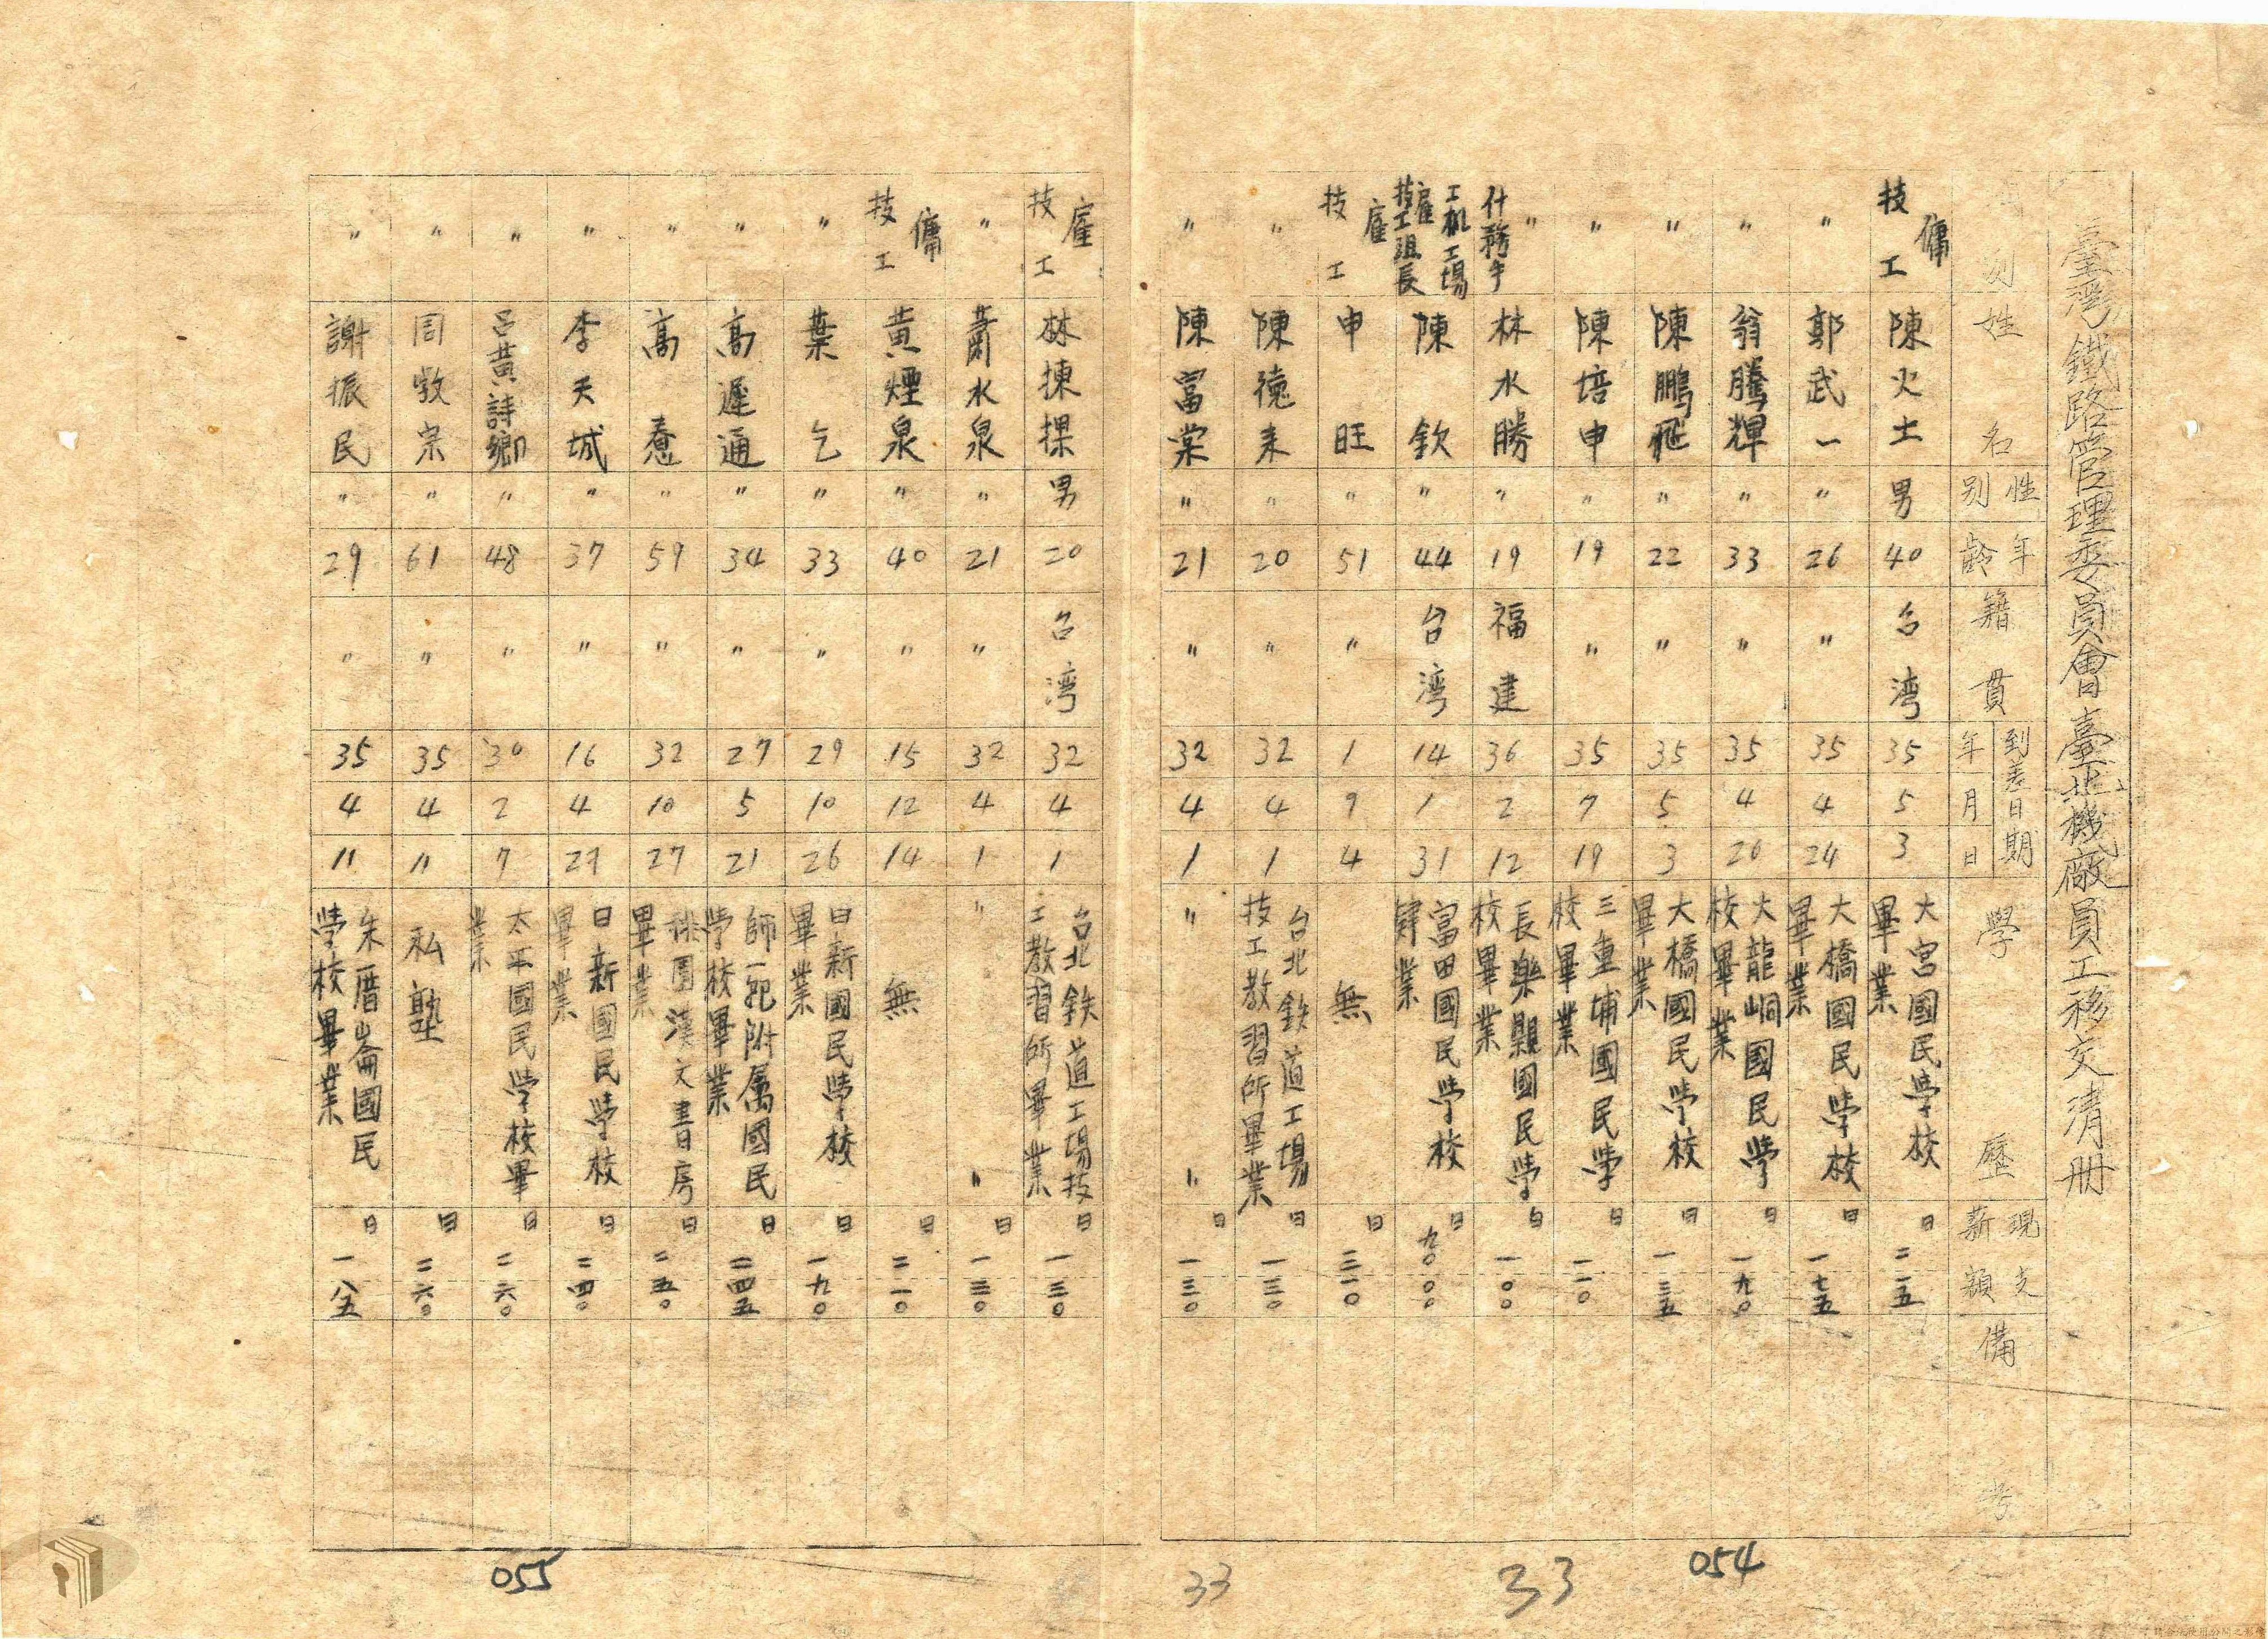 臺灣鐵路管理委員會臺北機廠員工移交清冊
別 姓名 性別 年齡 籍貫 到差日期 年 月 日 學歷 現支薪額 備考
傭技工 陳火土 男 40 台湾 35 5 3 大宮國民学校畢業 日 二一五
〃 郭武一 〃 26 〃 35 4 24 大橋國民学校畢業 日 一七五
〃 翁騰輝 〃 33 〃 35 4 20 大龍峒國民学校畢業 日 一九〇
〃 陳鵬飛 〃 22 〃 35 5 3 大橋國民学校畢業 日 一三五
〃 陳培申 〃 19 〃 35 7 19 三重埔國民学校畢業 日 一一〇
〃 什務手 林水勝 〃 19 福建 36 2 12 長樂縣國民学校畢業 日 一〇〇
工机工場雇技工組長 陳欽 〃 44 台湾 14 1 31 富田國民学校肄業 日 九〇〇〇
雇技工 申旺 〃 51 〃 1 9 4 無 日 三一〇
〃 陳德来 〃 20 〃 32 4 1 台北鉄道工場技工教習所畢業 日 一三〇
〃 陳富棠 〃 21 〃 32 4 1 〃 〃 日 一三〇
雇技工 林揀捰 男 20 台湾 32 4 1 台北鉄道工場技工教習所畢業 日 一三〇
〃 蕭水泉 〃 21 〃 32 4 1 〃 〃 日 一三〇
傭技工 黄煙泉 〃 40 〃 15 12 14 無 日 二一〇
〃 葉乞 〃 33 〃 29 10 26 日新國民学校畢業 日 一九〇
〃 高遲通 〃 34 〃 27 5 21 師範附属國民学校畢業 日 二四五
〃 高 〃 59 〃 32 10 27 桃園漢文書房畢業 日 二五〇
〃 李天城 〃 37 〃 16 4 27 日新國民学校畢業 日 二四〇
〃 呂黄詩鄉 〃 48 〃 30 2 7 太平國民学校畢業 日 二六〇
〃 周敦宗 〃 61 〃 35 4 11 私塾 日 二六〇
〃 謝振民 〃 29 〃 35 4 11 朱厝崙國民学校畢業 日 一八五
054
33
33
055